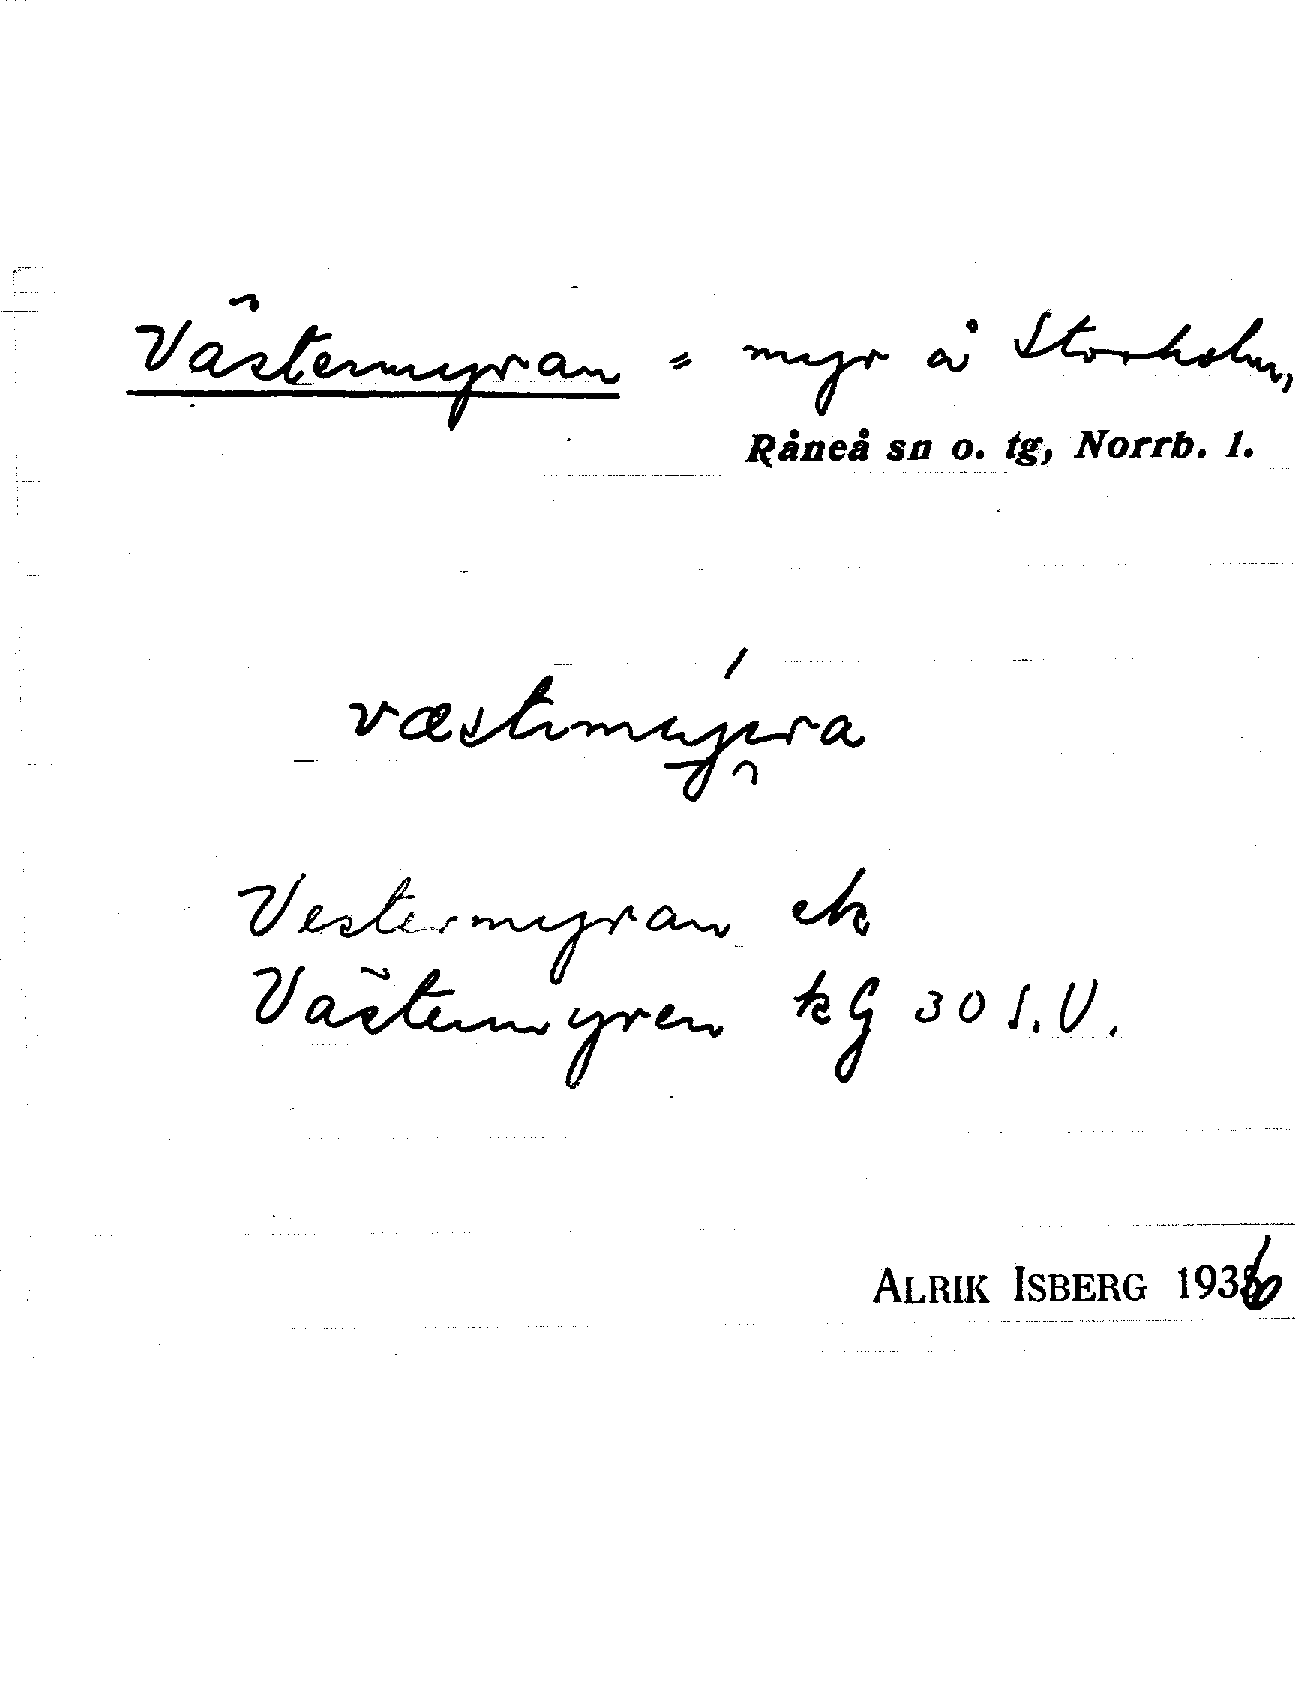 Västermyran = myr å Storholm,
Råneå sn o. tg, Norrb. l.
væstermyra
Vestermyran ek
Västermyren kG 30 S.V.
ALRIK ISBERG 1936